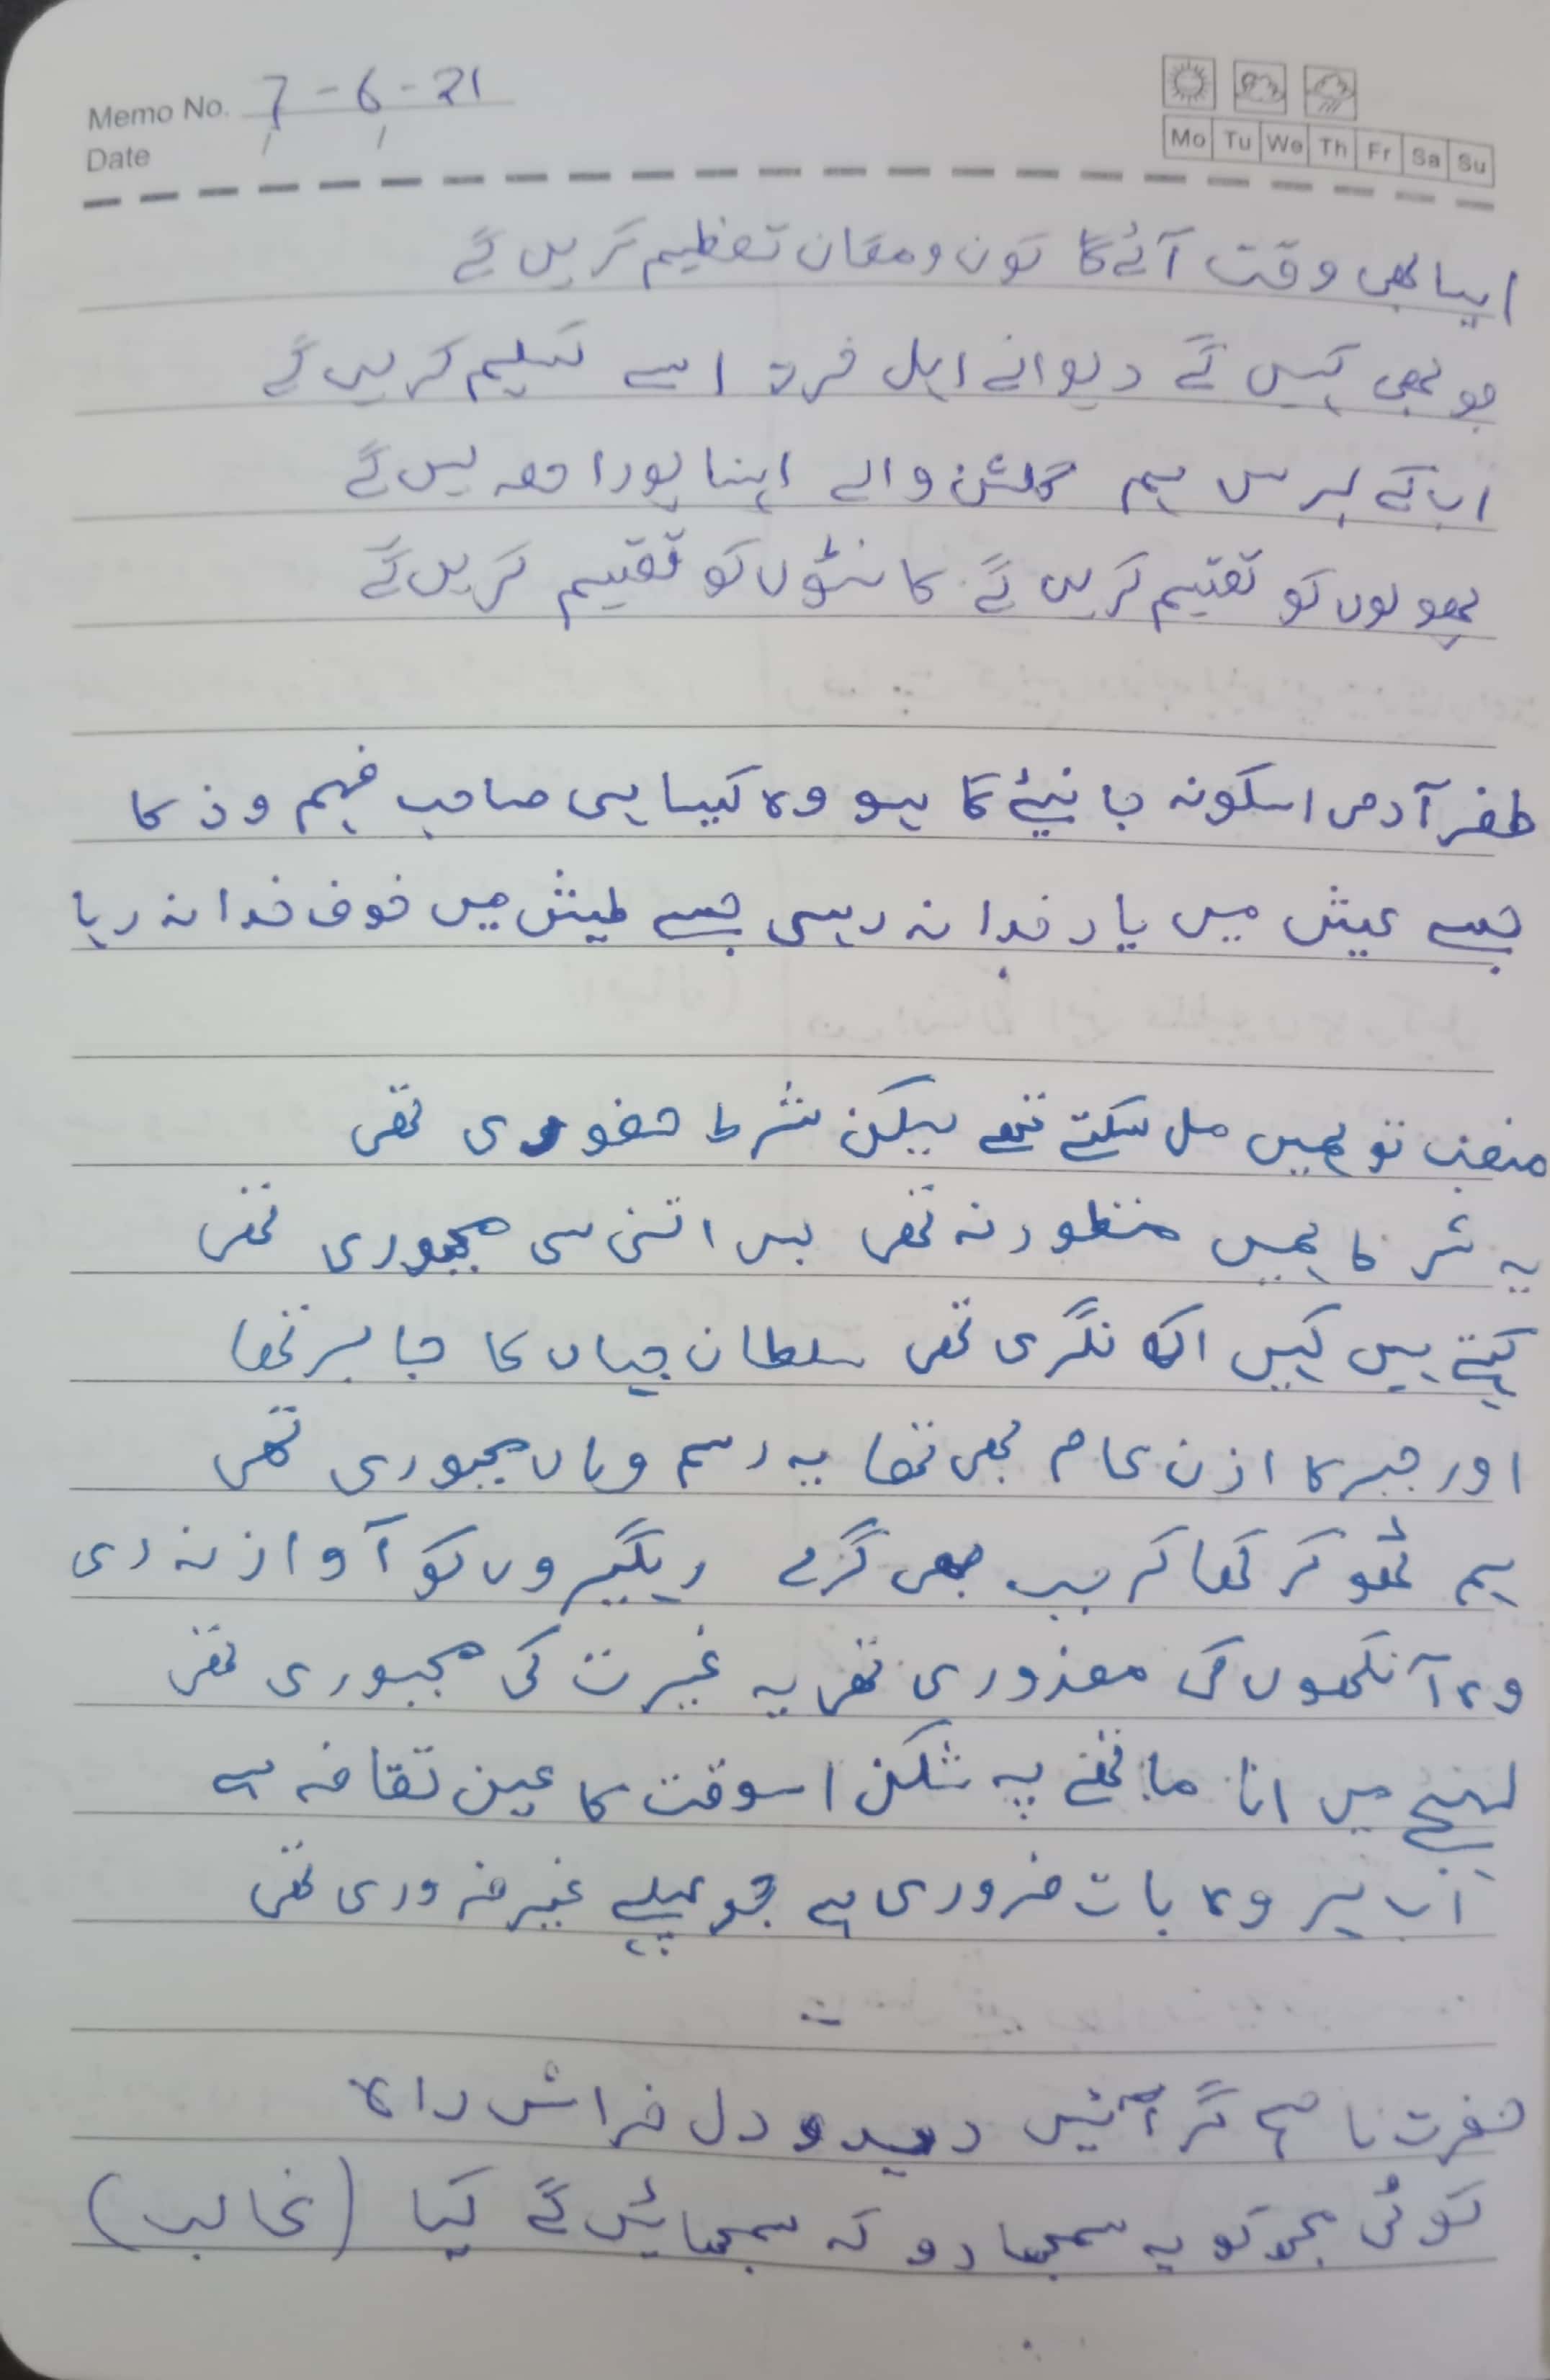 Memo No. 7-6-21
Date
Mo Tu We Th Fr Sa Su
ایسا بھی وقت آئے گا کون و مکان تعظیم کریں گے
جو بھی کہیں گے دیوانے اہل خرد اسے تسلیم کریں گے
اب کے برس ہم گلشن والے اپنا پورا حصہ لیں گے
پھولوں کو تقسیم کریں گے کانٹوں کو تقسیم کریں گے
ظفر آدمی اسکو نہ جانیئے گا ہو وہ کیسا ہی صاحب فہم و ذکا
جسے عیش میں یاد خدا نہ رہی جسے طیش میں خوف خدا نہ رہا
منصب تو ہمیں مل سکتے تھے لیکن شرط حضوری تھی
یہ شرط ہمیں منظور نہ تھی بس اتنی سی مجبوری تھی
کہتے ہیں کہیں اک نگری تھی سلطان جہاں کا جابر تھا
اور جبر کا اذن عام بھی تھا یہ رسم وہاں مجبوری تھی
ہم ٹھوکر کھا کر جب بھی گرے رہگیروں کو آواز نہ دی
وہ آنکھوں کی معذوری تھی یہ غیرت کی مجبوری تھی
لہجے میں انا ماتھے پہ شکن اسوقت کا عین تقاضہ ہے
اب ہر وہ بات ضروری ہے جو پہلے غیر ضروری تھی
حضرت ناصح گر آئیں دیدہ و دل فراش راہ
کوئی مجھ کو یہ سمجھا دو کہ سمجھائیں گے کیا (غالب)